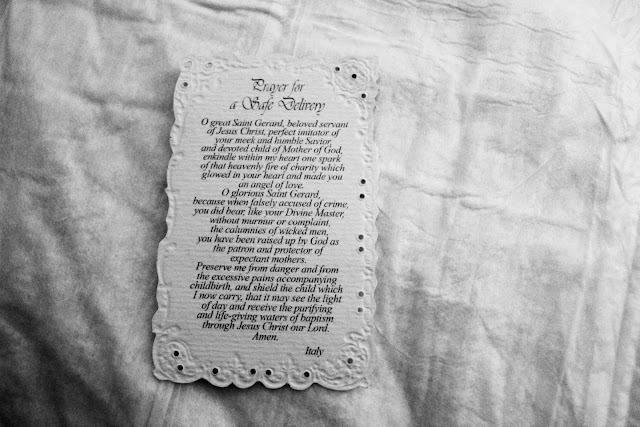 Prayer for
a Safe Delivery
O great Saint Gerard, beloved servant
of Jesus Christ, perfect imitator of
your meek and humble Savior,
and devoted child of Mother of God,
enkindle within my heart one spark
of that heavenly fire of charity which
glowed in your heart and made you
an angel of love.
O glorious Saint Gerard,
because when falsely accused of crime,
you did bear, like your Divine Master,
without murmur or complaint,
the calumnies of wicked men,
you have been raised up by God as
the patron and protector of
expectant mothers.
Preserve me from danger and from
the excessive pains accompanying
childbirth, and shield the child which
I now carry, that it may see the light
of day and receive the purifying
and life-giving waters of baptism
through Jesus Christ our Lord.
Amen.
Italy